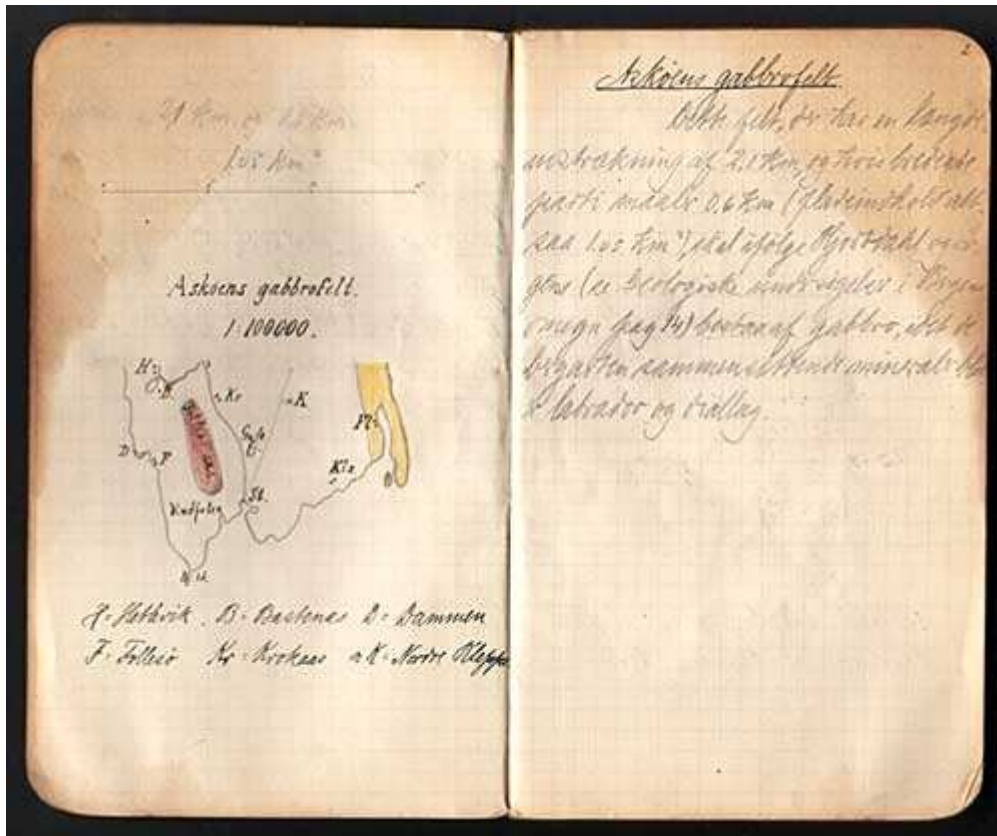 2.1 Km. og 0.6 Km.
1.05 Km²
Askøens gabbrofelt.
1:100000.
H:
B.
Kr
K
D
F
Fl:
Kls
St.
H = Hethvik. B = Bastenæs D = Dammen
F = Follesö Kr = Krokaas n.K = Nordre Kleppe
2
Askøens gabbrofelt
Dette felt, der har en længde-
udstrækning af 2.1 Km, og hvis bredeste
parti maaler 0.6 Km (fladeindhold alt-
saa 1.05 Km²), skal ifølge Hjortdahl og
(se Geologiske undersøgelser i Bergens
omegn pag 14) bestaa af gabbro, idet de
bergarten sammensættende mineraler
er labrador og diallag.